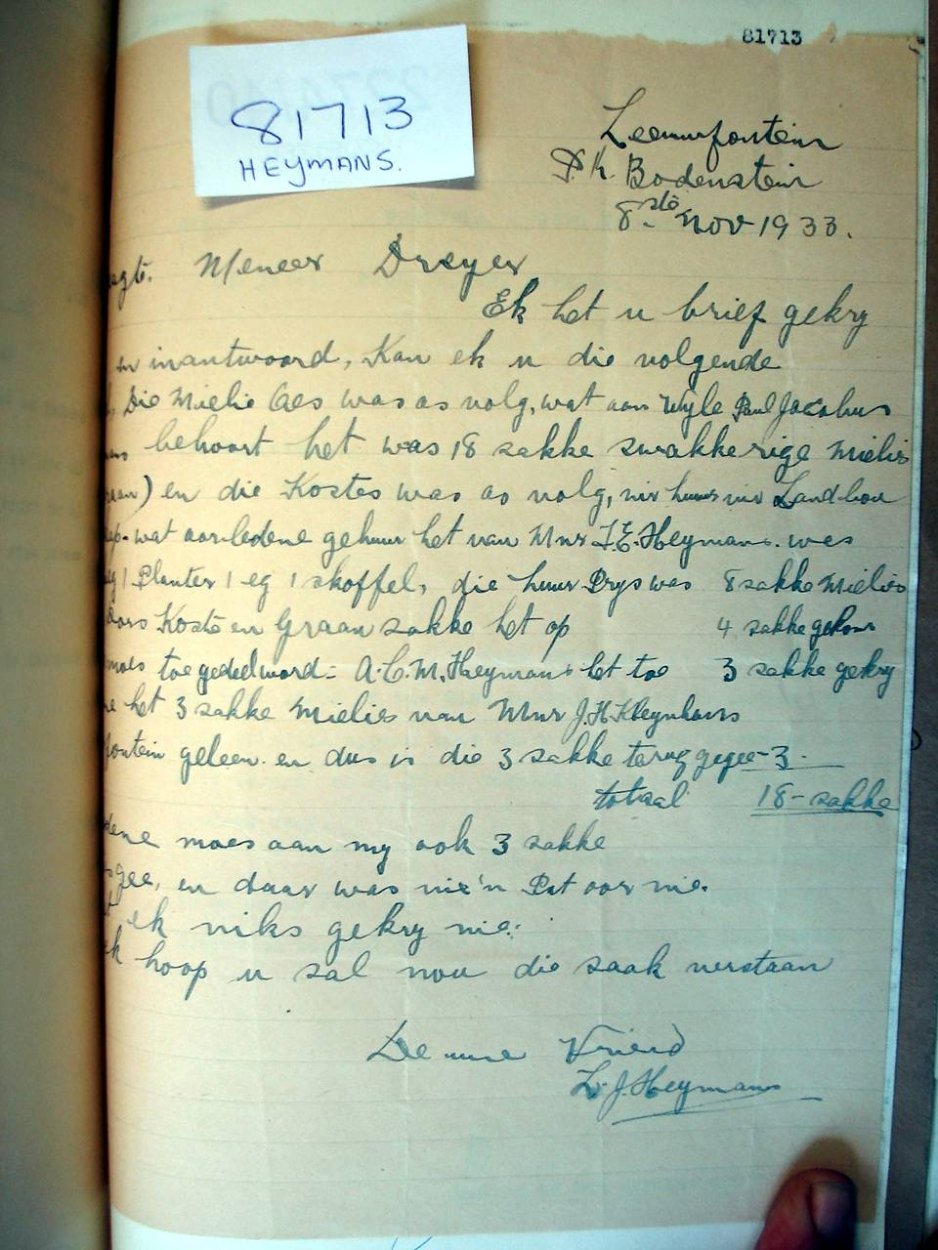 81713
81713
HEYMANS.
Leeuwfontein
P.k. Bodenstein
8ste Nov 1933.
Meneer Dreyer
Ek het u brief gekry
en inantwoord, Kan ek u die volgende
Die Mielie Oes was as volg, wat aan Wyle Paul Jacobus
behoort het was 18 sakke swakkerige mielies
en die Kostes was as volg, vir huur vir Landbou
wat oorledene gehuur het van Mnr J.E. Heymans. was
1 Planter 1 eg 1 skoffel, die huur Prys was 8 sakke Mielies
Koste en Graan sakke het op 4 sakke gekom
moes toegedeel word: A.C.M. Heymans het toe 3 sakke gekry
het 3 sakke Mielies van Mnr J.H. Kleynhans
fontein geleen. en dus is die 3 sakke terug gegee - 3.
totaal 18 - sakke
moes aan my ook 3 sakke
gee, en daar was nie 'n Pit oor nie.
ek niks gekry nie.
hoop u sal nou die saak verstaan
Vriend
L.J. Heymans